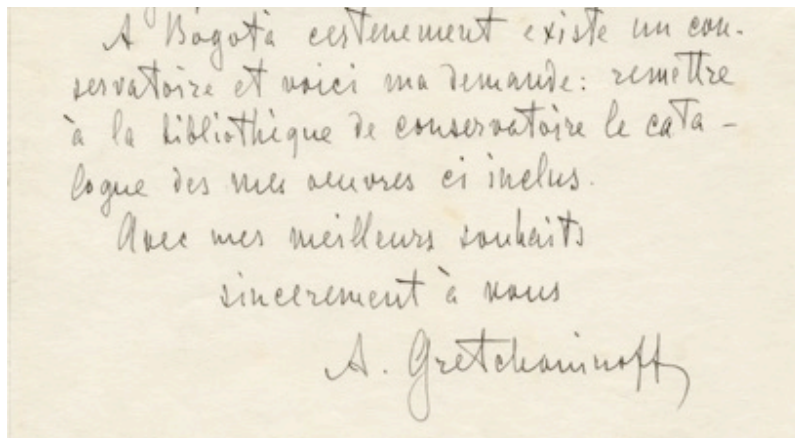 A Bogotà certenement existe un con-
servatoire et voici ma demande: remettre
à la bibliothèque de conservatoire le cata-
logue des mes oeuvres ci inclus.
Avec mes meilleurs souhaits
sincerement à vous
A. Gretchaninoff